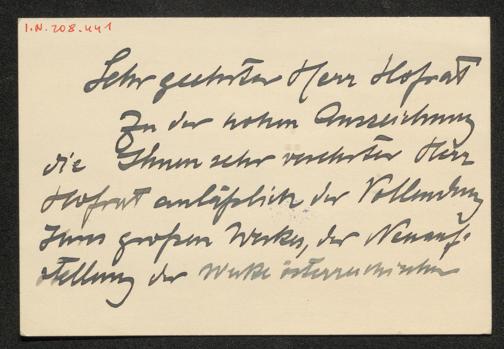 I.N. 208.441
Sehr geehrter Herr Hofrat
Zu der hohen Auszeichnung
die Ihnen sehr verehrter Herr
Hofrat anläßlich der Vollendung
Ihres großen Werkes, der Neuauf-
stellung der Werke österreichischer